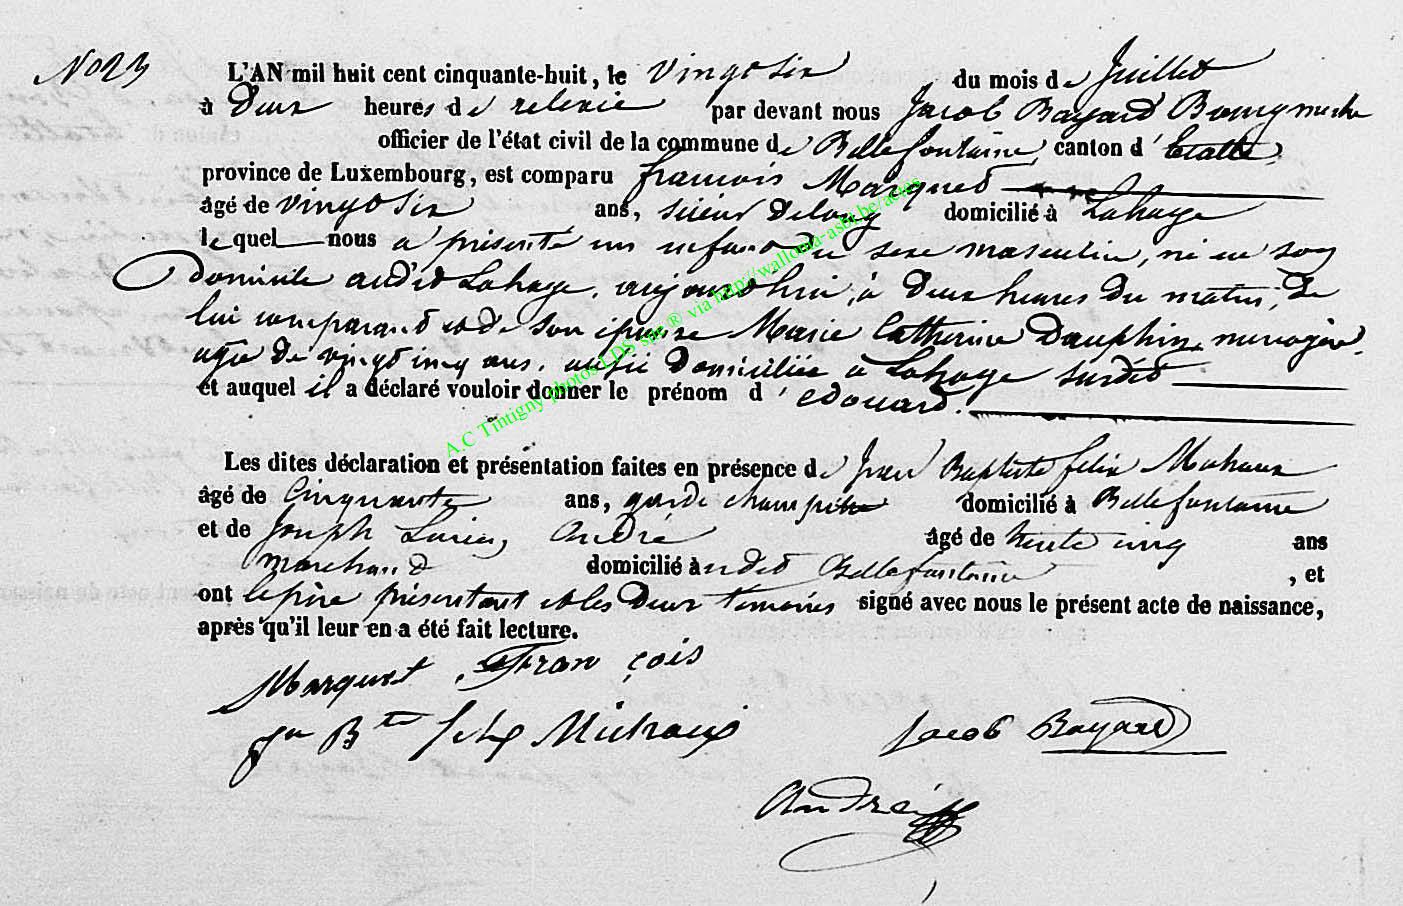 No 23
L'AN mil huit cent cinquante-huit, le vingt six du mois de Juillet
à deux heures de relevée par devant nous Jacob Bayard Bourgmestre
officier de l'état civil de la commune de Bellefontaine, canton d'Etalle,
province de Luxembourg, est comparu françois Marquet
âgé de vingt six ans, scieur de long domicilié à Lahage
lequel nous a présenté un enfant du sexe masculin, né en son
domicile audit Lahage, aujourd'hui, à deux heures du matin, de
lui comparant et de son épouse Marie Catherine Dauphin, menagère,
agée de vingt cinq ans, aussi domiciliée à Lahage surdit
et auquel il a déclaré vouloir donner le prénom d'edouard.
Les dites déclaration et présentation faites en présence de Jean Baptiste felix
âgé de Cinquante ans, garde champêtre domicilié à Bellefontaine
et de Joseph Lucien André âgé de trente cinq ans
marchand domicilié à udit Bellefontaine, et
ont le père présentant et les deux temoins signé avec nous le présent acte de naissance,
après qu'il leur en a été fait lecture.
Marquet François
Jn Bte felix Jacob Bayard
André
A.C Tintigny photos LDS sur ® via http://walloma-asbl.be/actes